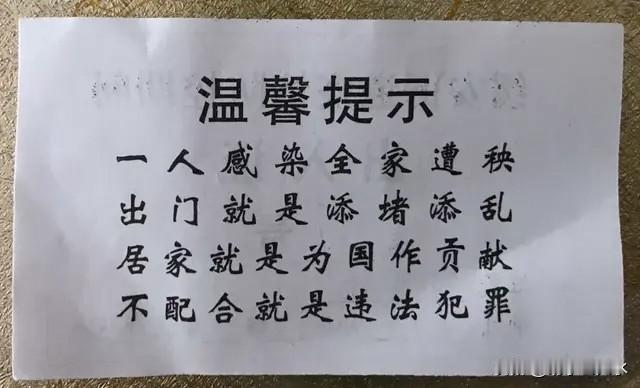 温馨提示
一人感染全家遭秧
出门就是添堵添乱
居家就是为国作贡献
不配合就是违法犯罪